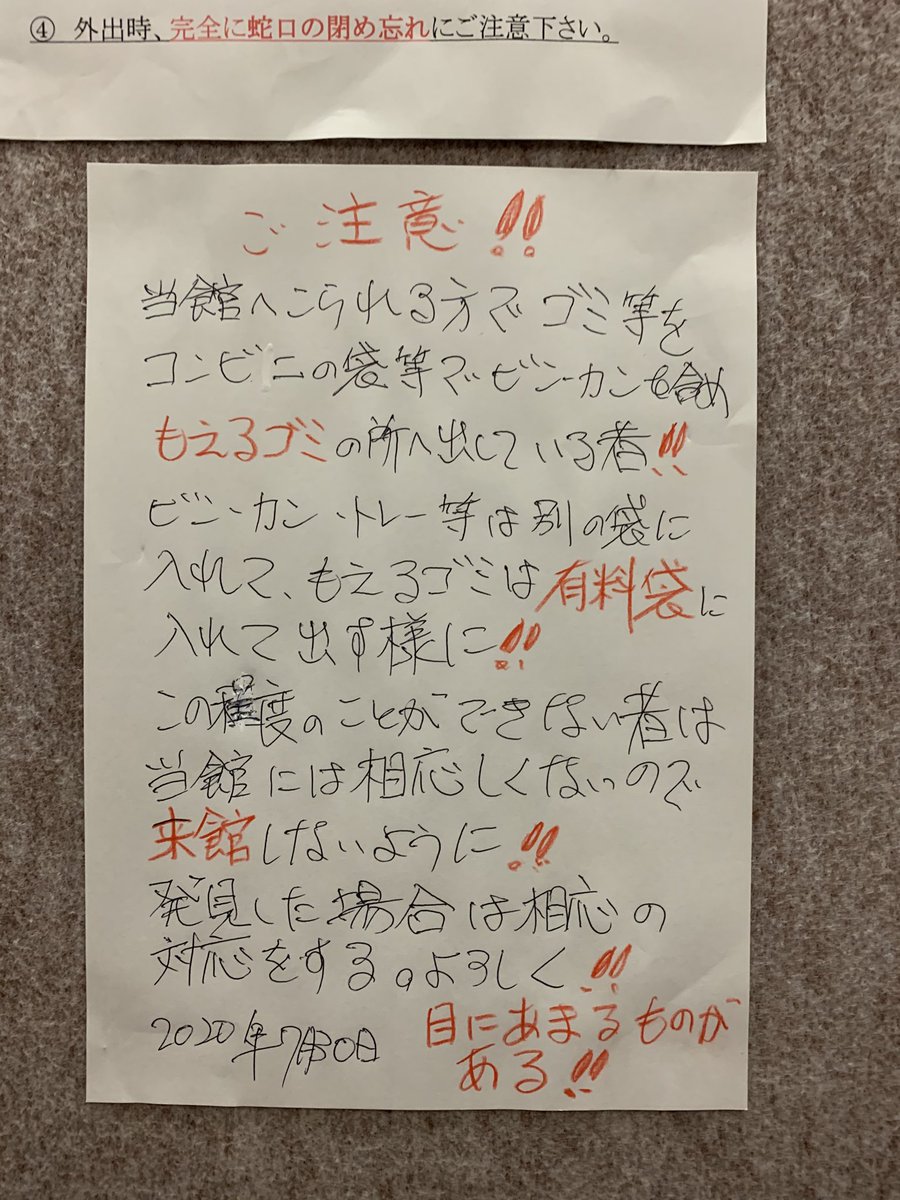 ④ 外出時、完全に蛇口の閉め忘れにご注意下さい。
ご注意!!
当館へこられる方で ゴミ等を
コンビニの袋等でビン・カンも含め
もえるゴミの所へ出している者!!
ビン・カン・トレー等は別の袋に
入れて、もえるゴミは有料袋に
入れて出す様に!!
この程度のことができない者は
当館には相応しくないので
来館しないように!!
発見した場合は相応の
対応をする。よろしく!!
2020年7月30日
目にあまるものが
ある!!